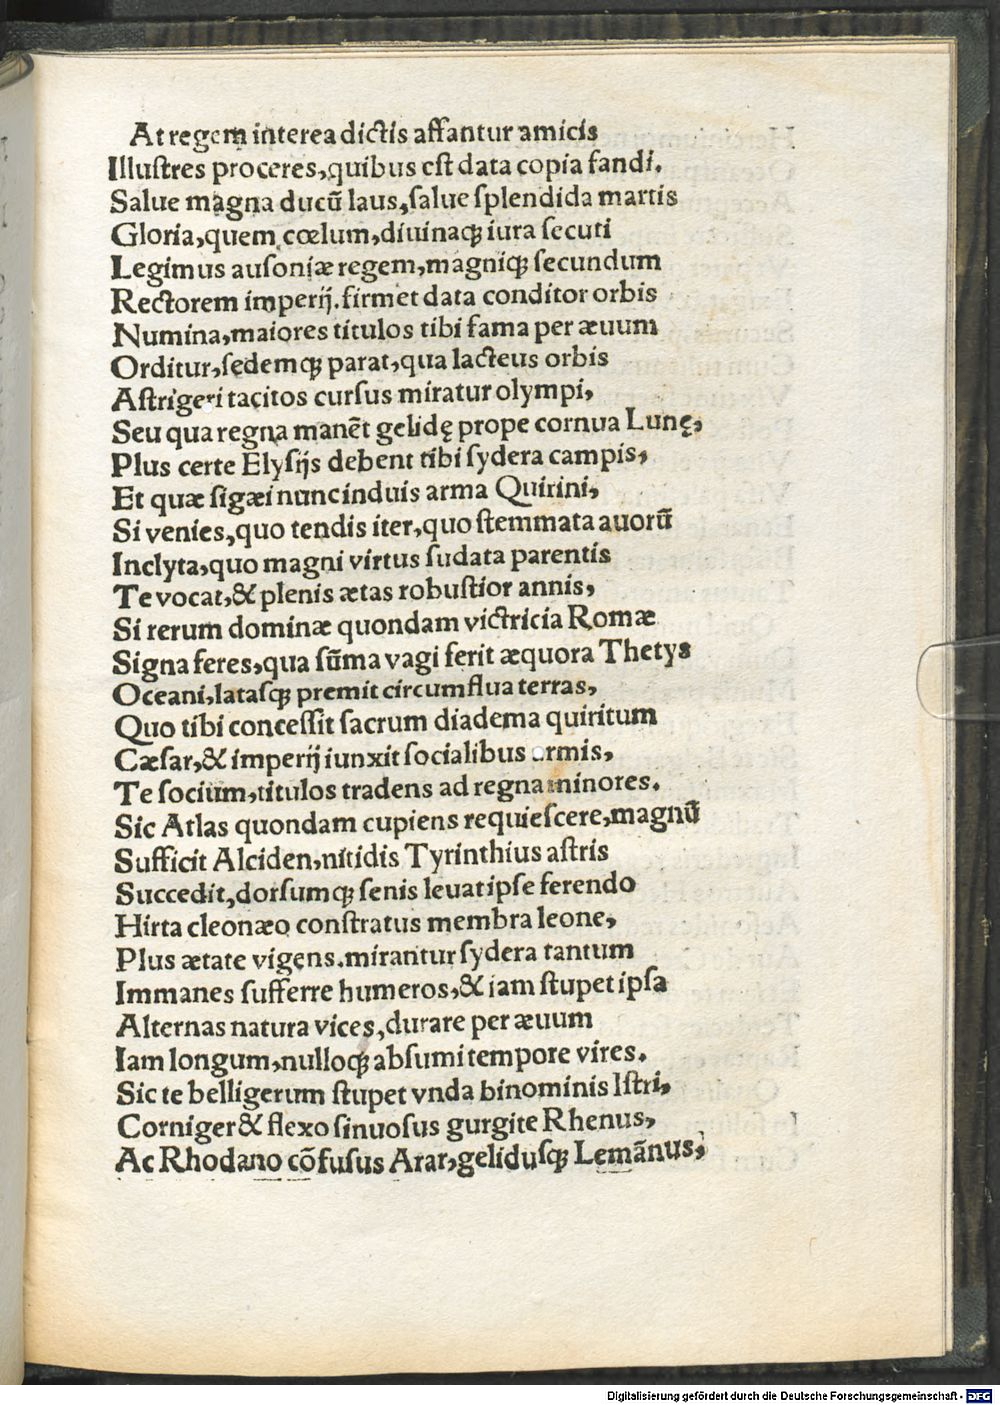 At regem interea dictis affantur amicis
Illuſtres proceres, quibus eſt data copia fandi.
Salue magna ducū laus, ſalue ſplendida martis
Gloria, quem cœlum, diuinaqꝫ iura ſecuti
Legimus auſoniæ regem, magniqꝫ ſecundum
Rectorem imperij. firmet data conditor orbis
Numina, maiores titulos tibi fama per æuum
Orditur, ſedemqꝫ parat, qua lacteus orbis
Aſtrigeri tacitos curſus miratur olympi,
Seu qua regna manēt gelidę prope cornua Lunę,
Plus certe Elyſijs debent tibi ſydera campis,
Et quæ ſigæi nunc induis arma Quirini,
Si venies, quo tendis iter, quo ſtemmata auorū
Inclyta, quo magni virtus ſudata parentis
Te vocat, & plenis ætas robuſtior annis,
Si rerum dominæ quondam victricia Romæ
Signa feres, qua ſūma vagi ferit æquora Thetys
Oceani, lataſqꝫ premit circumflua terras,
Quo tibi conceſſit ſacrum diadema quiritum
Cæſar, & imperij iunxit ſocialibus armis,
Te ſocium, titulos tradens ad regna minores.
Sic Atlas quondam cupiens requieſcere, magnū
Sufficit Alciden, nitidis Tyrinthius aſtris
Succedit, dorſumqꝫ ſenis leuat ipſe ferendo
Hirta cleonæo conſtratus membra leone,
Plus ætate vigens. mirantur ſydera tantum
Immanes ſufferre humeros, & iam ſtupet ipſa
Alternas natura vices, durare per æuum
Iam longum, nulloqꝫ abſumi tempore vires.
Sic te belligerum ſtupet vnda binominis Iſtri,
Corniger & flexo ſinuoſus gurgite Rhenus,
Ac Rhodano cōfuſus Arar, geliduſqꝫ Lemānus,
Digitalisierung gefördert durch die Deutsche Forschungsgemeinschaft - DFG